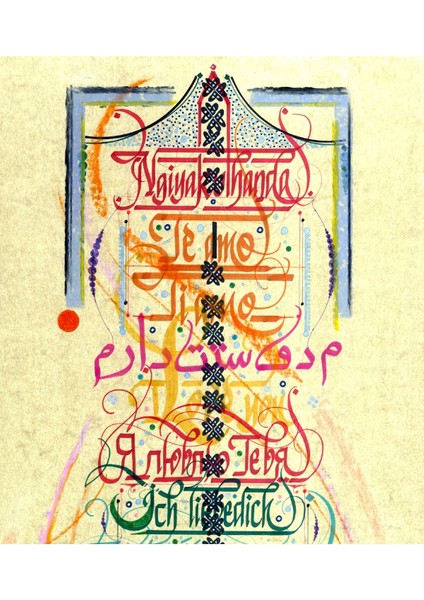 Ngiyakuthanda
Te amo
Ti amo
م دوستت دارم
Я люблю Тебя
Ich liebe dich